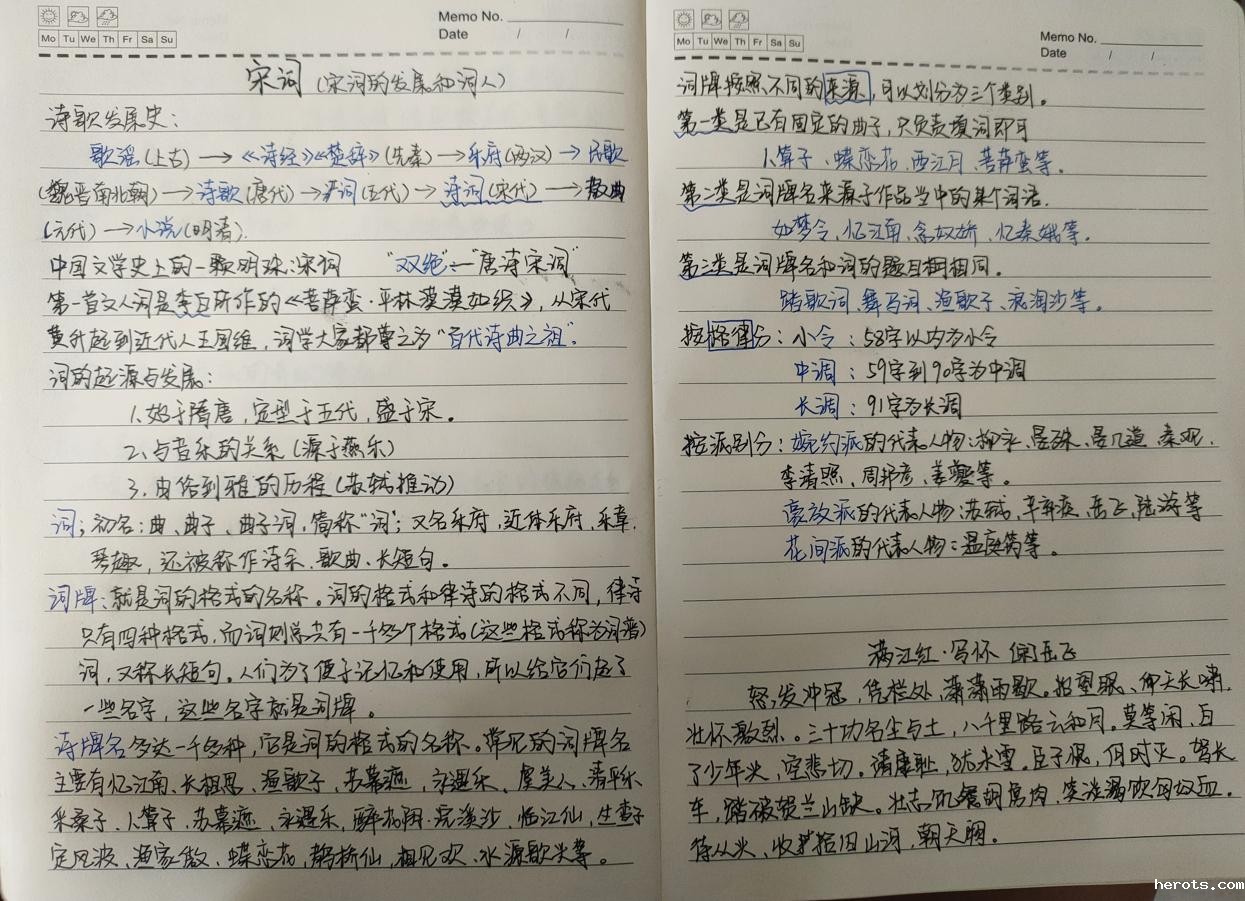 Memo No.
Mo Tu We Th Fr Sa Su
Date / /
宋词(宋词的发展和词人)
诗歌发展史:
歌谣(上古)→《诗经》《楚辞》(先秦)→乐府(两汉)→民歌
(魏晋南北朝)→诗歌(唐代)→词(五代)→诗词(宋代)→散曲
(元代)→小说(明清).
中国文学史上的一颗明珠:宋词 "双绝":"唐诗宋词"
第一首文人词是李白所作的《菩萨蛮·平林漠漠如织》,从宋代
黄升起到近代人王国维,词学大家都尊之为"百代诗曲之祖".
词的起源与发展:
1.始于隋唐,定型于五代,盛于宋。
2.与音乐的关系(源于燕乐)
3.由俗到雅的历程(苏轼推动)
词;初名:曲、曲子、曲子词,简称"词";又名乐府,近体乐府,乐章,
琴趣,还被称作诗余、歌曲、长短句。
词牌:就是词的格式的名称。词的格式和律诗的格式不同,律诗
只有四种格式,而词则总共有一千多个格式(这些格式称为词谱)
词,又称长短句。人们为了便于记忆和使用,所以给它们起了
一些名字,这些名字就是词牌。
诗牌名多达一千多种,它是词的格式的名称。常见的词牌名
主要有忆江南、长相思、渔歌子、苏幕遮、永遇乐、虞美人、清平乐
采桑子、卜算子、苏幕遮、永遇乐,醉花阴·浣溪沙、临江仙,生查子
定风波、渔家傲、蝶恋花,鹊桥仙,相见欢、水源歌头等。
Memo No.
Mo Tu We Th Fr Sa Su
Date / /
词牌按照不同的来源,可以划分为三个类别。
第一类是已有固定的曲子,只负责填词即可
卜算子、蝶恋花、西江月、菩萨蛮等.
第二类是词牌名来源于作品当中的某个词语.
如梦令、忆江南、念奴娇、忆秦娥等.
第三类是词牌名和词的题目相相同。
踏歌词、舞马词、渔歌子、浪淘沙等。
按格律分:小令:58字以内为小令
中调:59字到90字为中调
长调:91字为长调
按派别分:婉约派的代表人物:柳永、晏殊、晏几道、秦观.
李清照、周邦彦、姜夔等。
豪放派的代表人物:苏轼、辛弃疾、岳飞、陆游等
花间派的代表人物:温庭筠等。
满江红·写怀 岳飞
怒发冲冠,凭栏处,潇潇雨歇。抬望眼、仰天长啸,
壮怀激烈。三十功名尘与土,八千里路云和月。莫等闲、白
了少年头,空悲切。靖康耻,犹未雪。臣子恨,何时灭。驾长
车,踏破贺兰山缺。壮志饥餐胡虏肉,笑谈渴饮匈奴血。
待从头、收拾旧山河,朝天阙。
herots.com